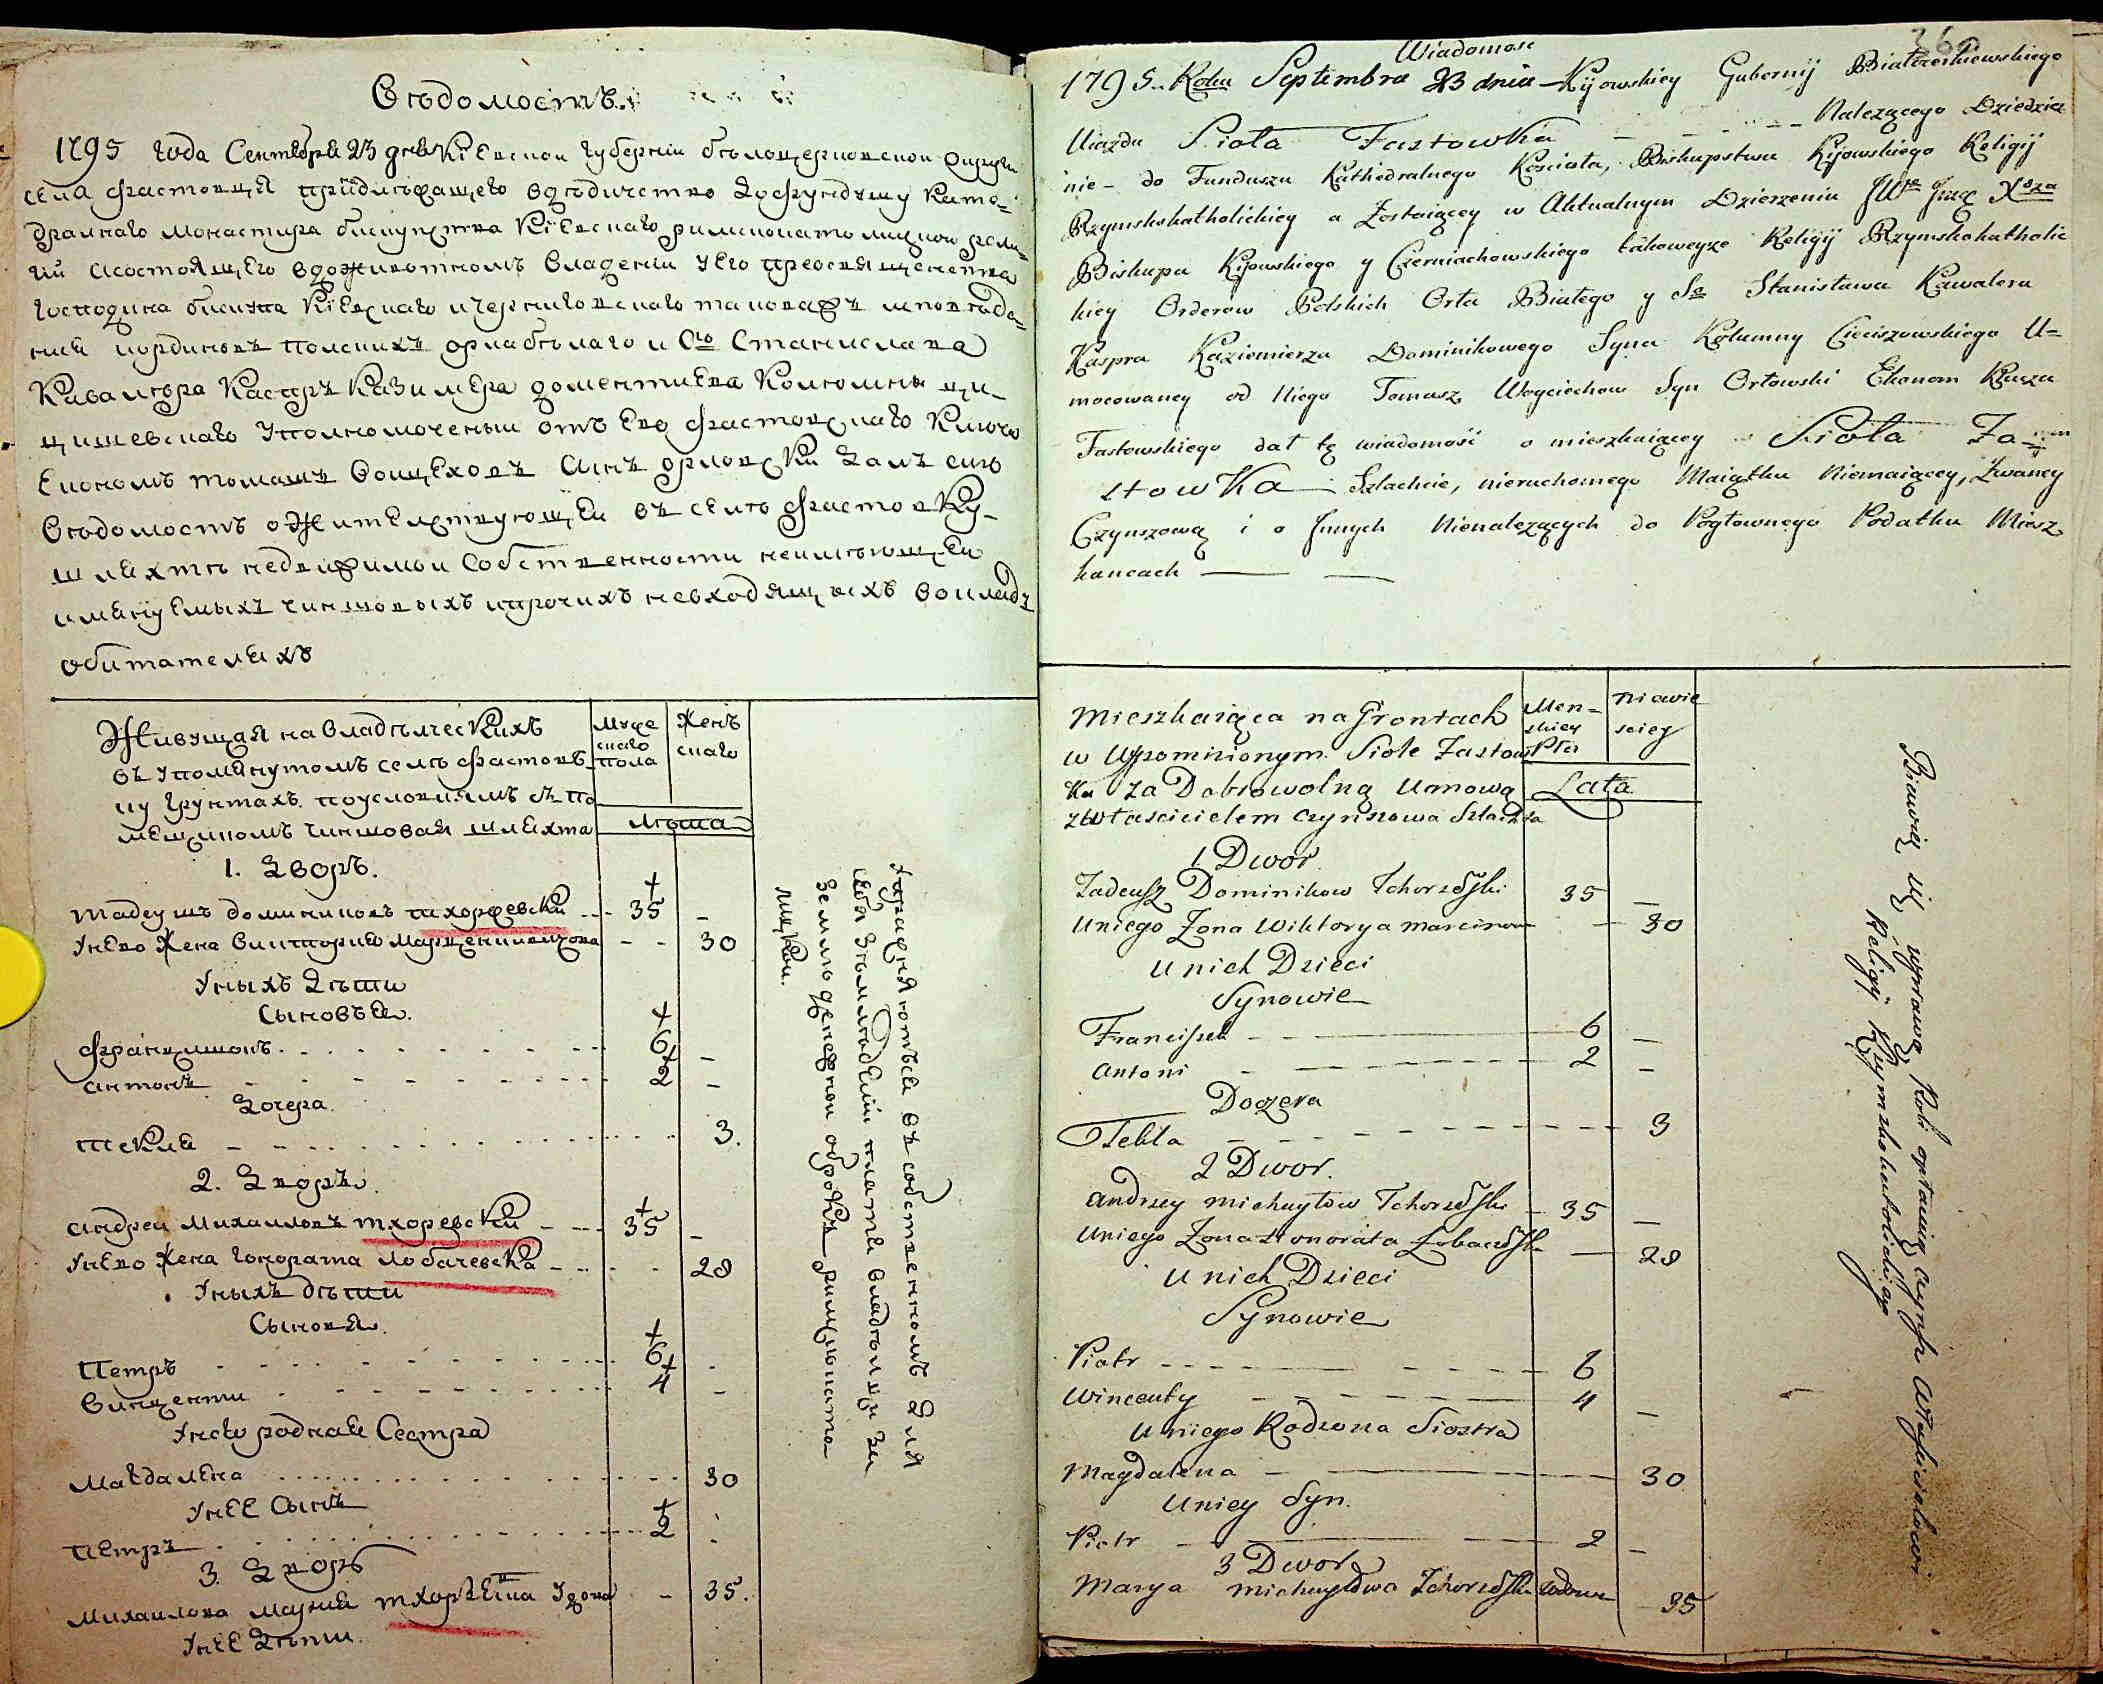 Вѣдомость.
1795 года Сентября 23 дня Кіевской губерніи бѣлоцерковской округи
села фастовця принадлежащего вдѣдичество дофундушу Кате-
дралнаго монастира бискупства Кіевскаго римскокатолицкой рели
гіи асостоящего вдоживотномъ владеніи Уего преосвященства
господина бискупа Кіевскаго ичерниговскаго таковажъ исповѣда-
нія иординовъ полскихъ орлабѣлаго и Сто Станислава
Кавалѣра Каспръ Казимера доментиева Колюмны ци-
цишевскаго Уполномоченый отъ Его фастовскаго Ключа
Економъ томашъ Войцеховъ Синъ орловски Далъ сию
Вѣдомость оЖителствующей въ селѣ фастовку-
шляхтѣ недвижимой собственности неимѣющей
имянуемыхъ чиншовыхъ ипрочихъ невходящихъ воокладъ
обитателяхъ
Живущая на владѣлческихъ
въ Упомянутомъ селѣ фастов-
ку грунтахъ поусловіямъ съ по
мещикомъ чиншовая шляхта
Муже
скаго
пола
Женъ
скаго
Лѣта
1. Дворъ.
тадеушъ доминиковъ тхоржевски 35 -
Унего Жена Виктория - - 30
Уныхъ Дѣти
Сыновья.
францишокъ 6 -
антонъ 2 -
Дочера
текля 3.
2. Дворъ.
андрей Михаиловъ тхоревский 35 -
Унего Жена гонората лобачевска 28
Уныхъ дѣти
Сыновя.
Петръ 6
винценти 4 -
Унего родная Сестра
Магдалена 30
Унее Сынъ
петръ 2
3. Дворъ
Михаилова марыя тхоржевска Удова - 35.
Унее Дѣти.
Упражняютъся въ собственномъ для
себя земледелии платя владѣлцу за
землю денежной оброкъ римскокато
лицкой.
36
Wiadomosc
1795. Roku Septembra 23 dnia Kijowskiey Gubernij Białocerkiewskiego
Uiazdu Sioła Fastowka Nalezącego Dziedzic
nie - do Funduszu Kathedralnego Koscioła, Biskupstwa Kijowskiego Religij
Rzymskokatholickiey a Zostaiącey w Aktualnym Dzierzeniu JWo Jmci Xdza
Biskupa Kijowskiego y Czerniachowskiego takoweyze Religij Rzymskokatholic
kiey Orderow Polskich Orła Białego y So Stanisława Kawalera
Kaspra Kazimierza Dominikowego Syna Kolumny Cieciszowskiego U=
mocowaney od Niego Tomasz Woyciechow Syn Orłowski Ekonom Klucza
Fastowskiego dał tę wiadomość o mieszkaiącey Sioła Fa=
stowka Szlachcie, nieruchomego Maiątku Niemaiącey, Zwaney
Czynszową i o Jnnych Nienalezących do Pogłownego Podatku Miesz
kancach
Mieszkaiąca na Grontach
w Wspomnionym Siole Fastow
ku za Dobrowolną Umową
z Własicielem czynszowa Szlachta
Men=
skiey
Płci
Niewie
sciey
Lata
1 Dwor
Tadeusz Dominikow Tchorzewski 35 -
Uniego Zona Wiktorya marcinow - 30
U nich Dzieci
Synowie
Franciszek 6 -
Antoni 2 -
Doczera
Tekla 3
2 Dwor.
Andrzey Michayłow Tchorzewski 35 -
Uniego Zona Honorata Łobaczewska - 28
U nich Dzieci
Synowie
Piotr 6
Wincenty 4 -
U niego Rodzona Siostra
Magdalena 30
Uniey Syn.
Piotr 2 -
3 Dwor
Marya Michayłowa Tchorzewska wdowa 35
Bawią się uprawą Roli opłacaiąc czynsz Własicielowi
Religij Rzymskokatholickiego